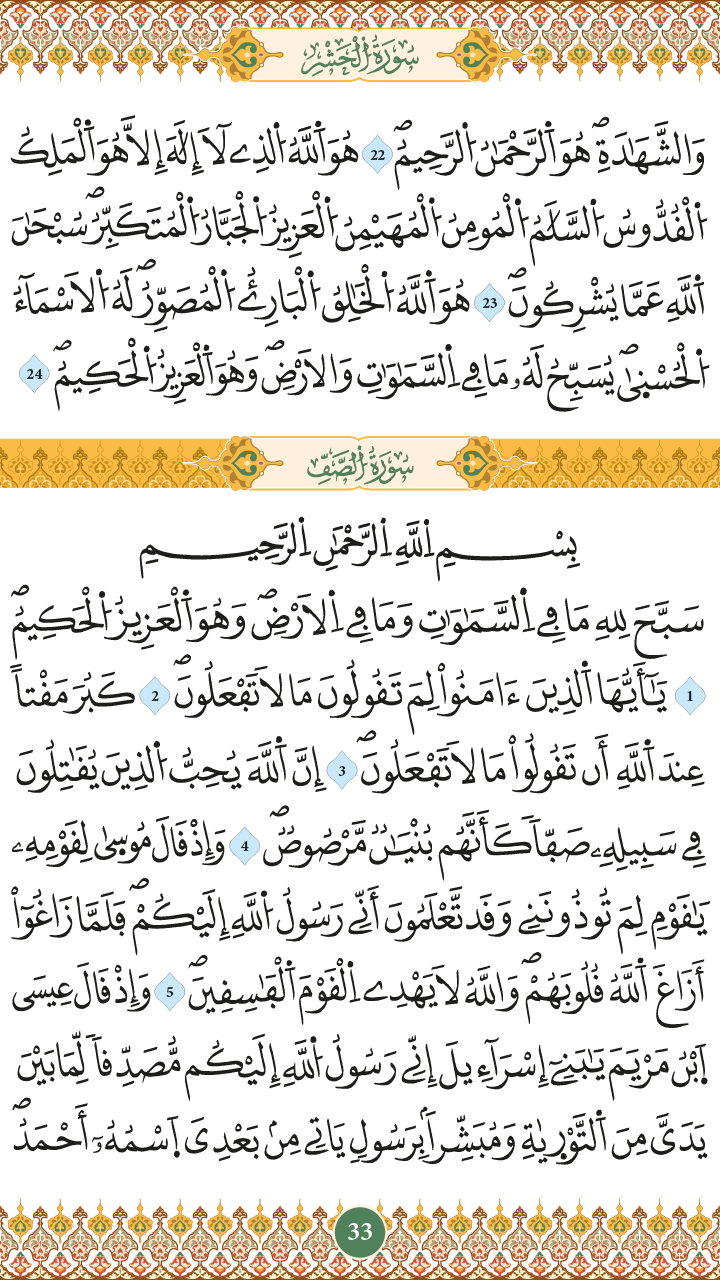 سُورَةُ الْحَشْرِ
وَالشَّهَٰدَةِۖ هُوَ اَ۬لرَّحْمَٰنُ اُ۬لرَّحِيمُۖ 22 هُوَ اَ۬للَّهُ اُ۬لذِے لَآ إِلَٰهَ إِلَّا هُوَ اَ۬لْمَلِكُ
اُ۬لْقُدُّوسُ اُ۬لسَّلَٰمُ اُ۬لْمُومِنُ اُ۬لْمُهَيْمِنُ اُ۬لْعَزِيزُ اُ۬لْجَبَّارُ اُ۬لْمُتَكَبِّرُۖ سُبْحَٰنَ
اَ۬للَّهِ عَمَّا يُشْرِكُونَۖ 23 هُوَ اَ۬للَّهُ اُ۬لْخَٰلِقُ اُ۬لْبَارِئُ اُ۬لْمُصَوِّرُۖ لَهُ اُ۬لَاسْمَآءُ
اُ۬لْحُسْن۪يٰۖ يُسَبِّحُ لَهُۥ مَا فِے اِ۬لسَّمَٰوَٰتِ وَالَارْضِۖ وَهُوَ اَ۬لْعَزِيزُ اُ۬لْحَكِيمُۖ 24
سُورَةُ الصَّفِّ
بِسْمِ اِ۬للَّهِ اِ۬لرَّحْمَٰنِ اِ۬لرَّحِيمِ
سَبَّحَ لِلهِ مَا فِے اِ۬لسَّمَٰوَٰتِ وَمَا فِے اِ۬لَارْضِۖ وَهُوَ اَ۬لْعَزِيزُ اُ۬لْحَكِيمُۖ
1 يَٰٓأَيُّهَا اَ۬لذِينَ ءَامَنُواْ لِمَ تَقُولُونَ مَا لَا تَفْعَلُونَۖ 2 كَبُرَ مَقْتاً
عِندَ اَ۬للَّهِ أَن تَقُولُواْ مَا لَا تَفْعَلُونَۖ 3 إِنَّ اَ۬للَّهَ يُحِبُّ اُ۬لذِينَ يُقَٰتِلُونَ
فِے سَبِيلِهِۦ صَفّاٗ كَأَنَّهُم بُنْيَٰنٞ مَّرْصُوصٞۖ 4 وَإِذْ قَالَ مُوس۪يٰ لِقَوْمِهِۦ
يَٰقَوْمِ لِمَ تُوذُونَنِے وَقَد تَّعْلَمُونَ أَنِّے رَسُولُ اُ۬للَّهِ إِلَيْكُمْۖ فَلَمَّا زَاغُوٓاْ
أَزَاغَ اَ۬للَّهُ قُلُوبَهُمْۖ وَاللَّهُ لَا يَهْدِے اِ۬لْقَوْمَ اَ۬لْفَٰسِقِينَۖ 5 وَإِذْ قَالَ عِيسَى
اَ۪بْنُ مَرْيَمَ يَٰبَنِےٓ إِسْرَآءِيلَ إِنِّے رَسُولُ اُ۬للَّهِ إِلَيْكُم مُّصَدِّقاٗ لِّمَا بَيْنَ
يَدَيَّ مِنَ اَ۬لتَّوْر۪يٰةِ وَمُبَشِّراَۢ بِرَسُولٖ يَاتِے مِنۢ بَعْدِيَ اَ۪سْمُهُۥٓ أَحْمَدُۖ
33